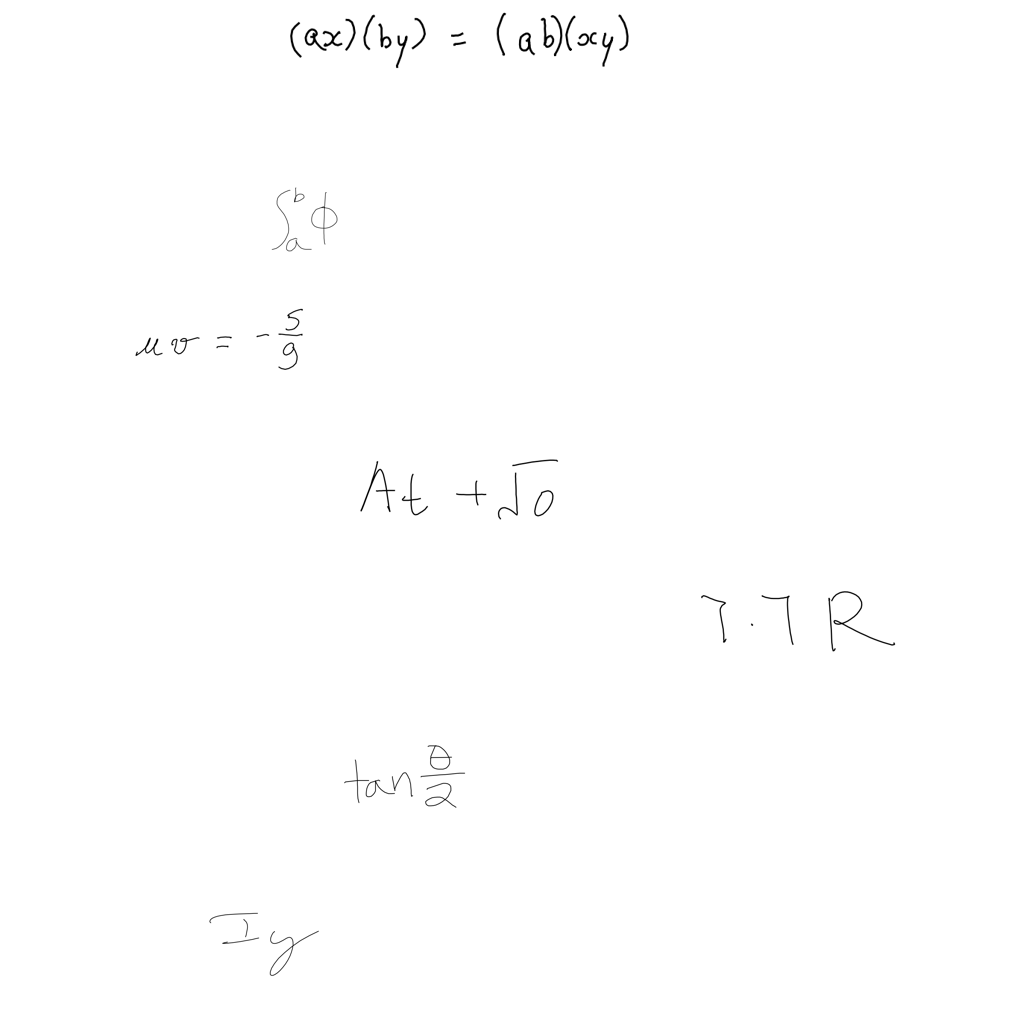 (ax)(by) = (ab)(xy)
∫_a^b ϕ
uv = -5/9
At + √0
7.7 R
tan θ/2
I y